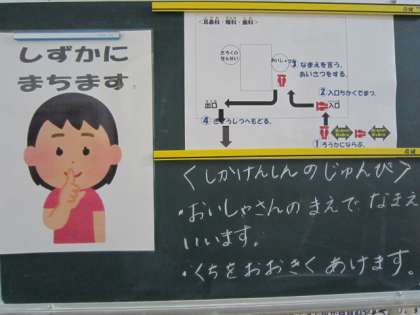 しずかに
まちます。
<耳鼻科・眼科・歯科>
③なまえを言う。
あいさつをする。
②入口ちかくでまつ。
出口
入口
④きょうしつへもどる。
①ろうかにならぶ。
<しかけんしんのじゅんび>
・おいしゃさんのまえでなまえ
いいます。
・くちをおおきくあけます。